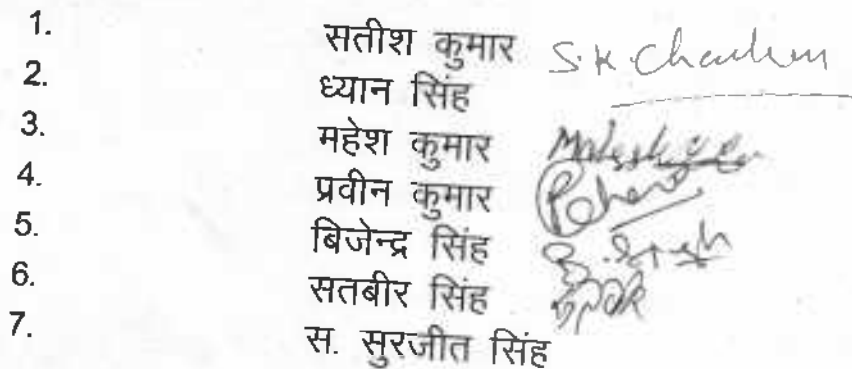 1. सतीश कुमार S.K. Chauhan
2. ध्यान सिंह
3. महेश कुमार
4. प्रवीन कुमार
5. बिजेन्द्र सिंह
6. सतबीर सिंह
7. स. सुरजीत सिंह